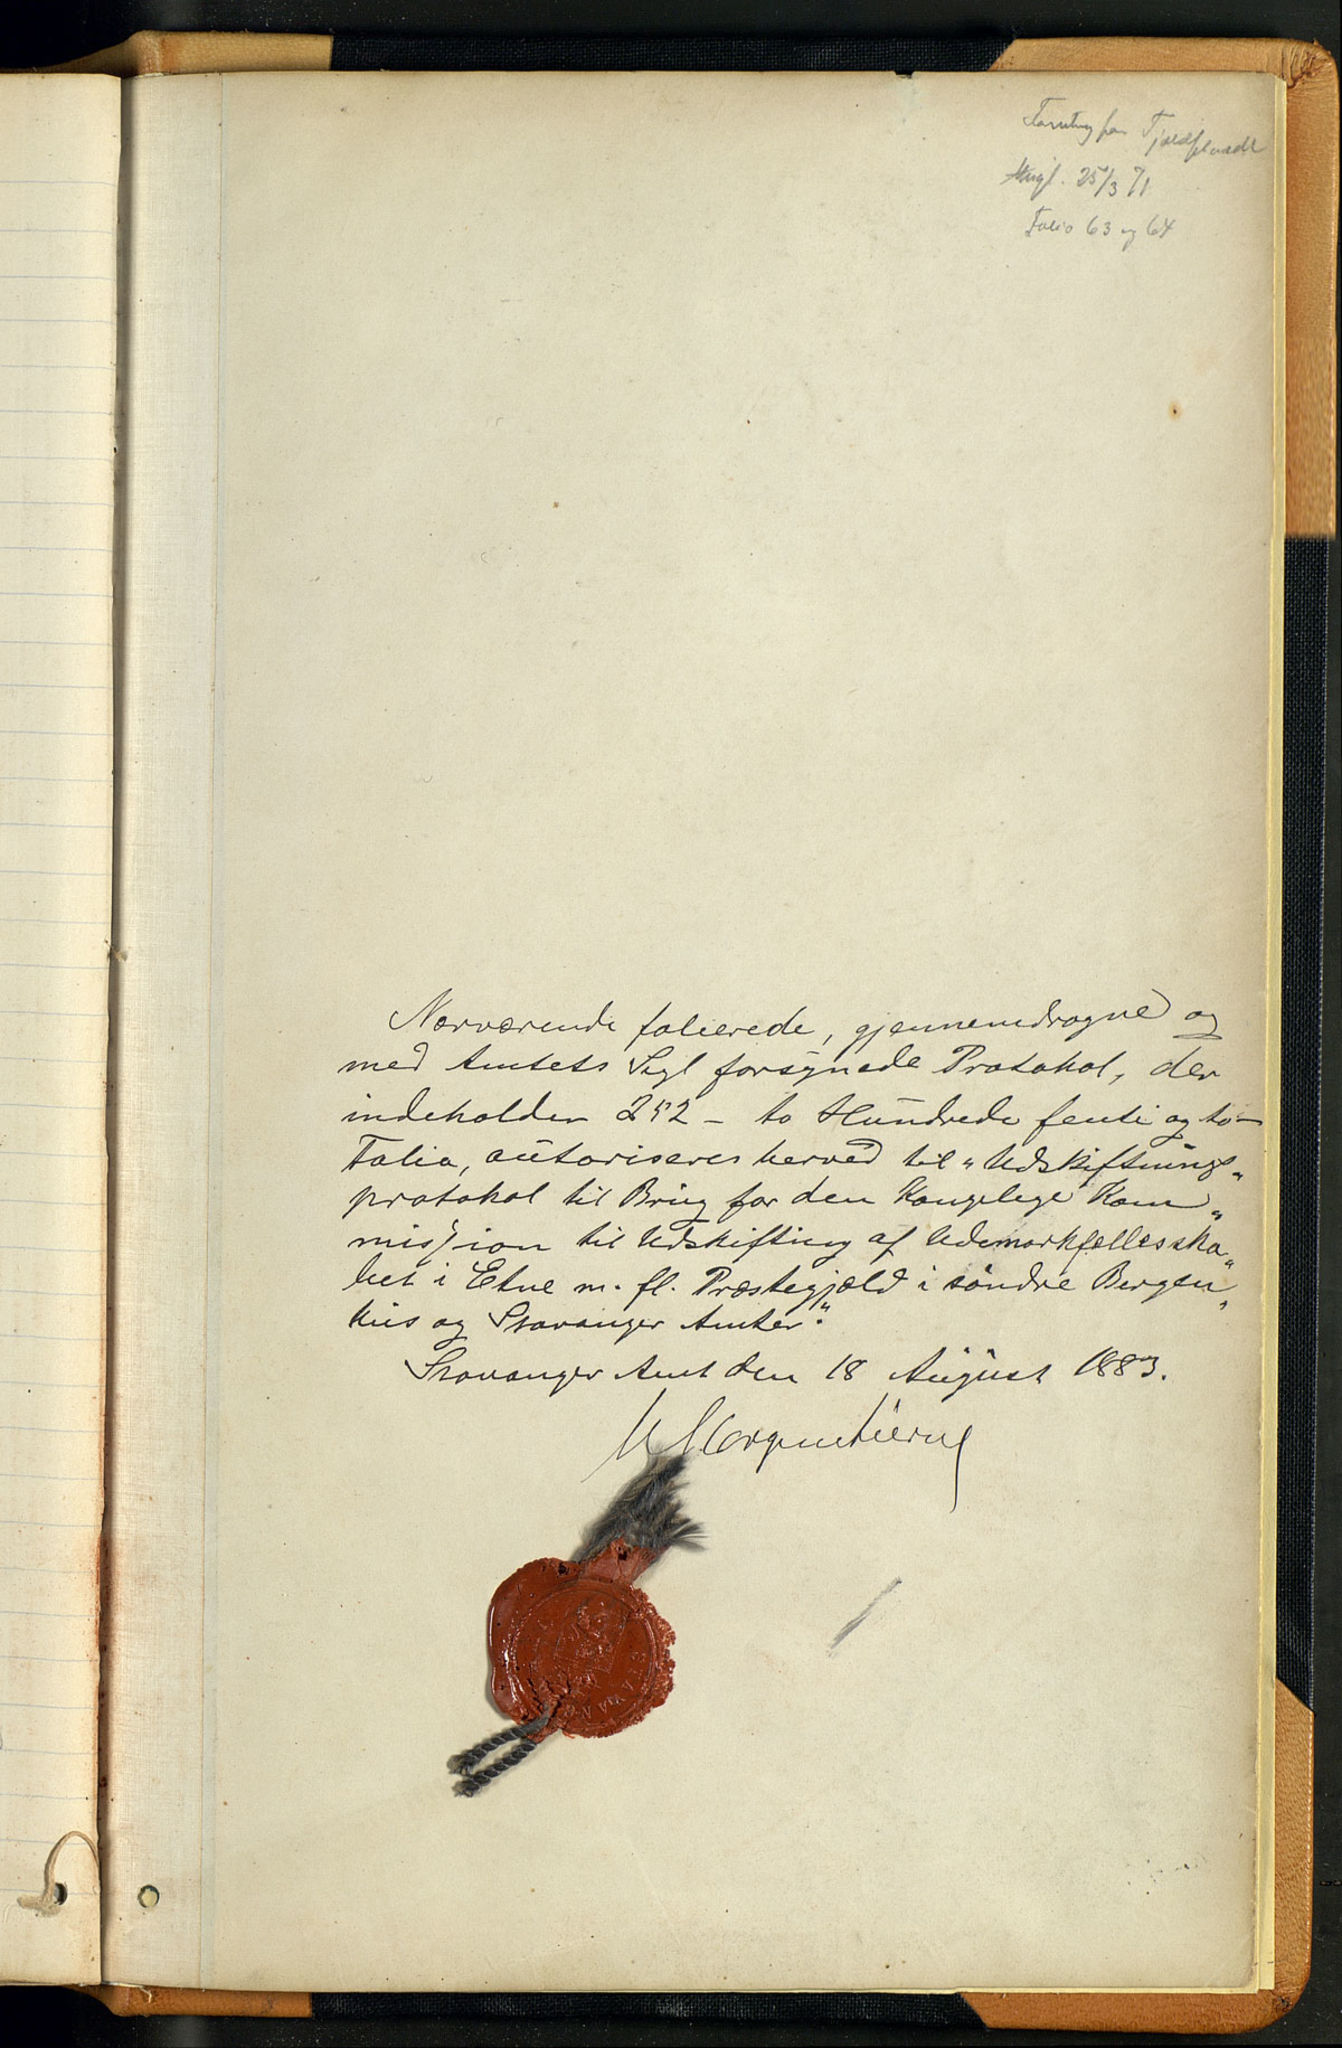 25/3 71
Folio 63 og 64
Nærværende folierede, gjennemdragne og
med Amtets Segl forsynede Protokol, der
indeholder 252 - to Hundrede femti og to -
Folia, autoriseres herved til „Udskiftnings„
protokol til Brug for den Kongelige Kom„
mission til Udskiftning af Udemarkfællesska„
bet i Etne m. fl. Præstegjæld i søndre Bergen„
hus og Stavanger Amter."
Stavanger Amt den 18 August 1883.
Morgenstierne
STAVANG